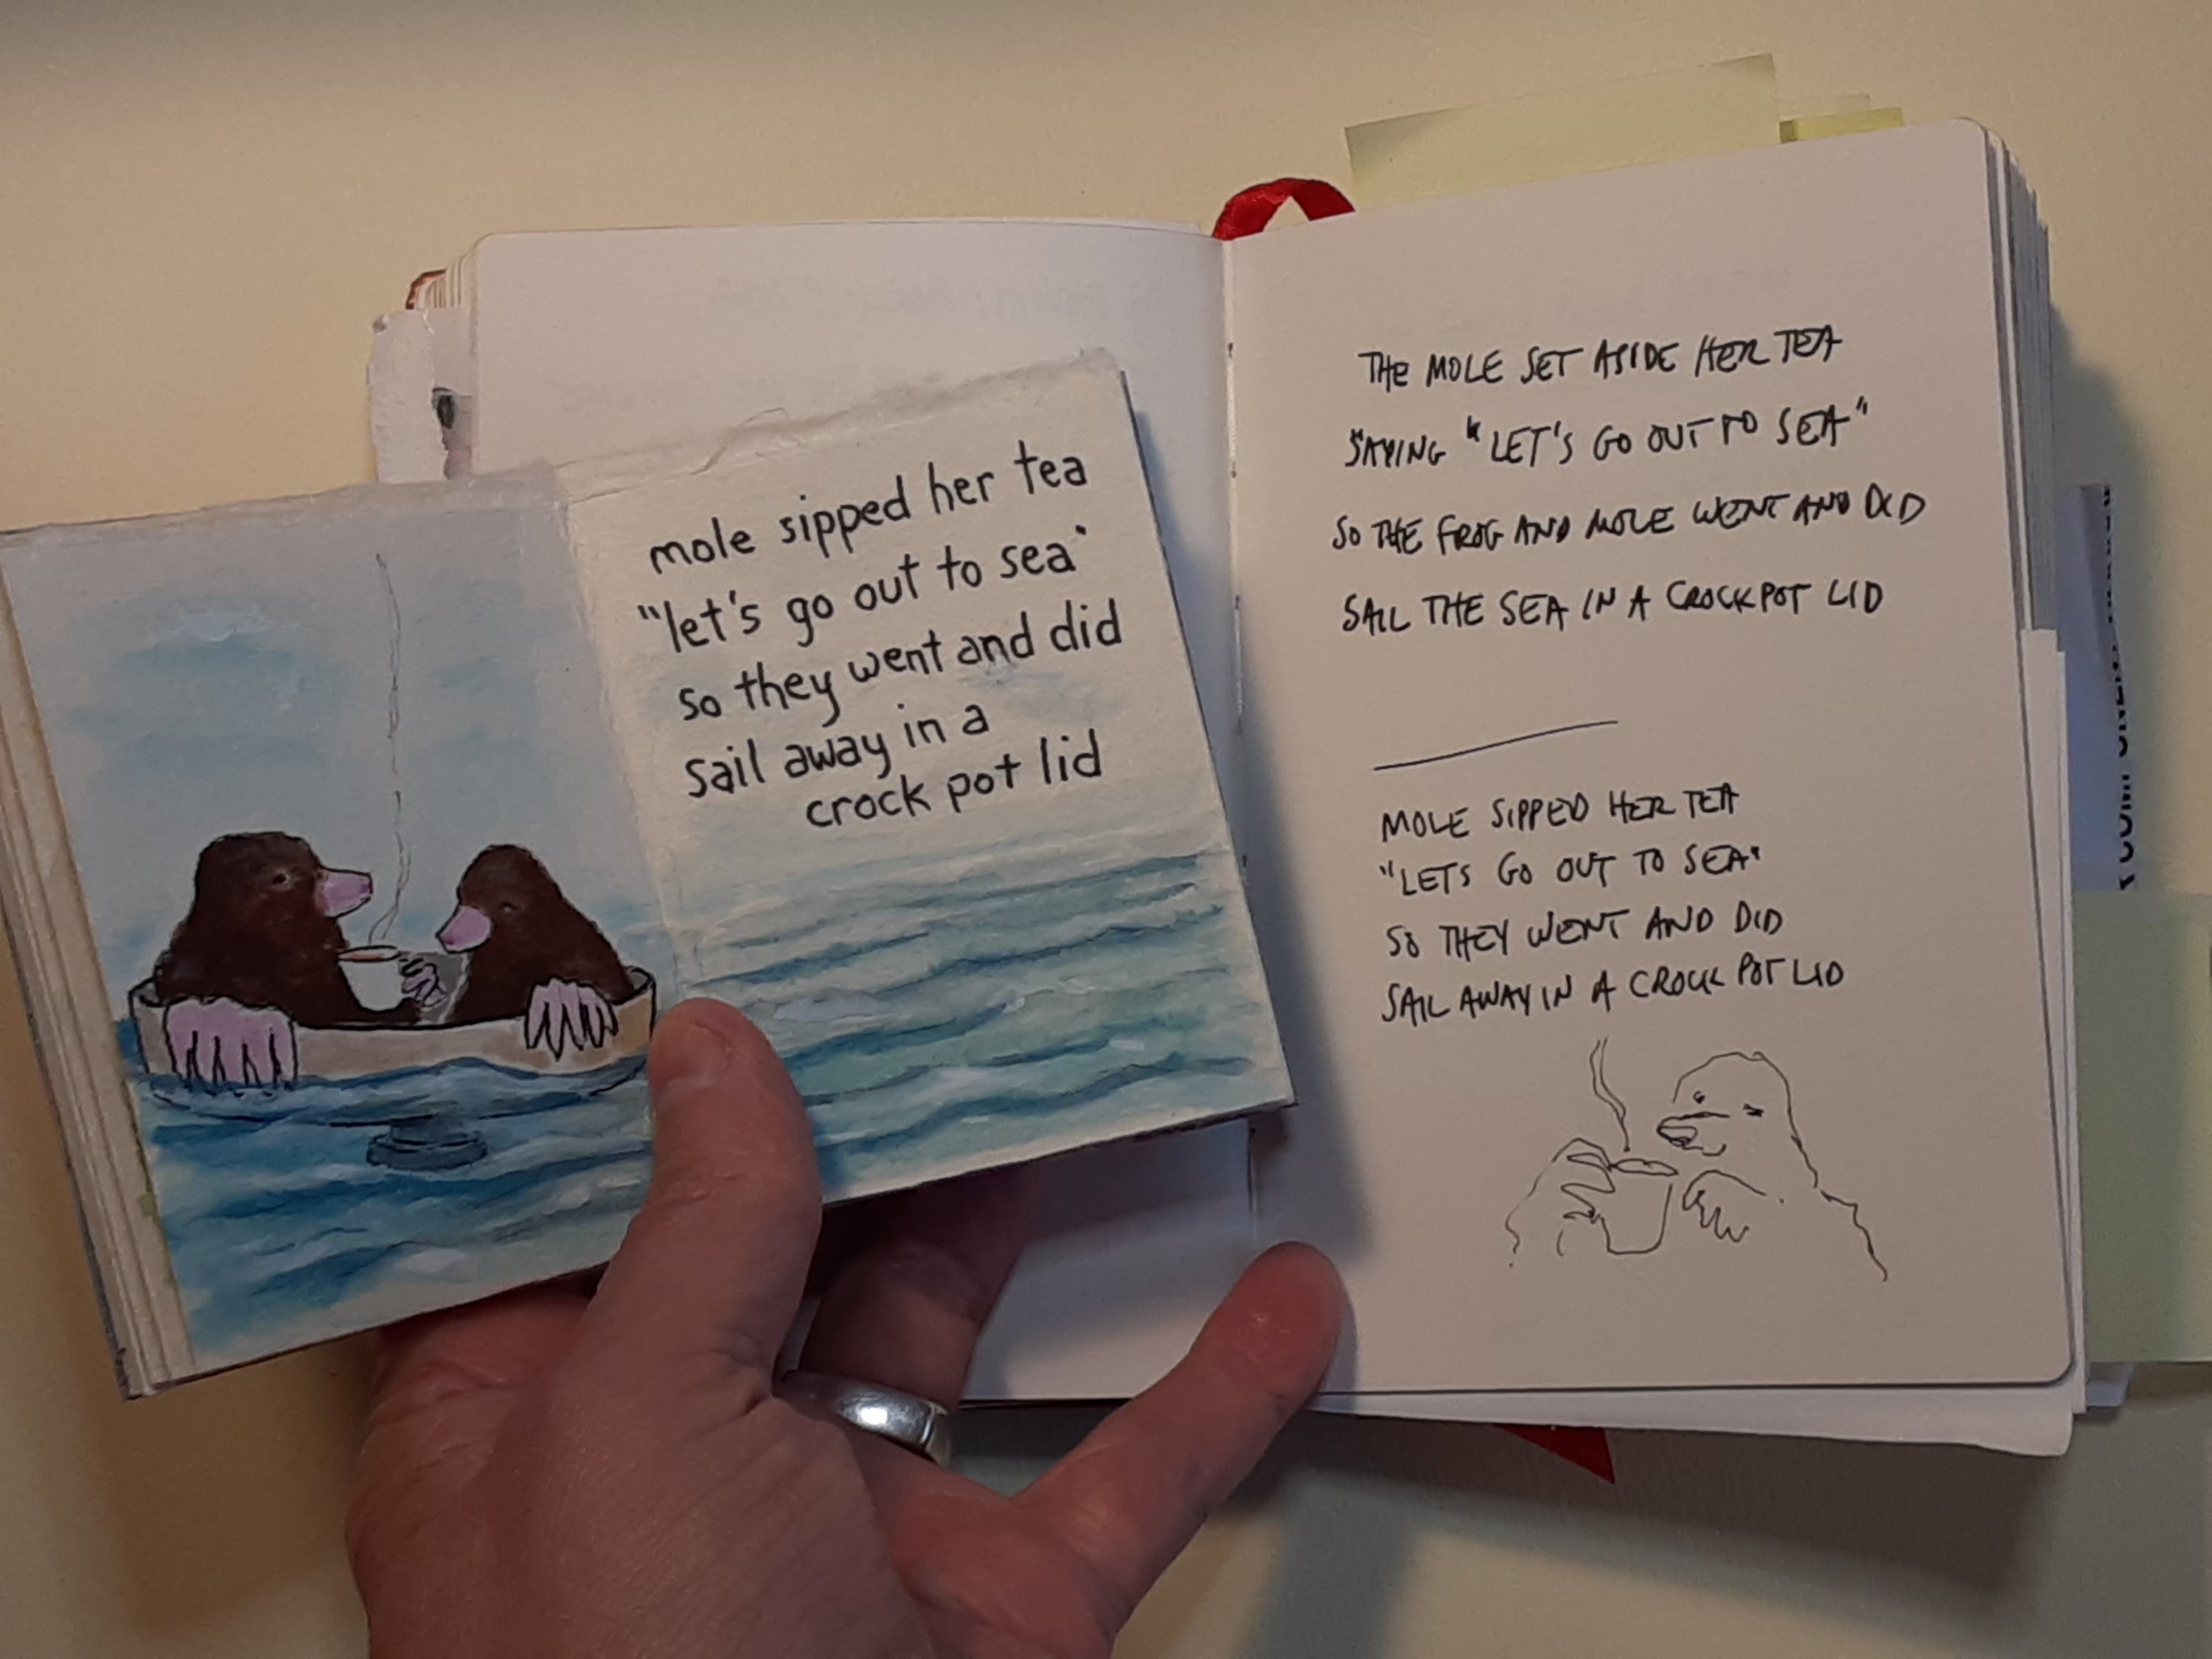 mole sipped her tea
"let's go out to sea"
so they went and did
sail away in a
crock pot lid
THE MOLE SET ASIDE HER TEA
SAYING "LET'S GO OUT TO SEA"
SO THE FROG AND MOLE WENT AND DID
SAIL THE SEA IN A CROCKPOT LID
MOLE SIPPED HER TEA
"LETS GO OUT TO SEA"
SO THEY WENT AND DID
SAIL AWAY IN A CROCK POT LID